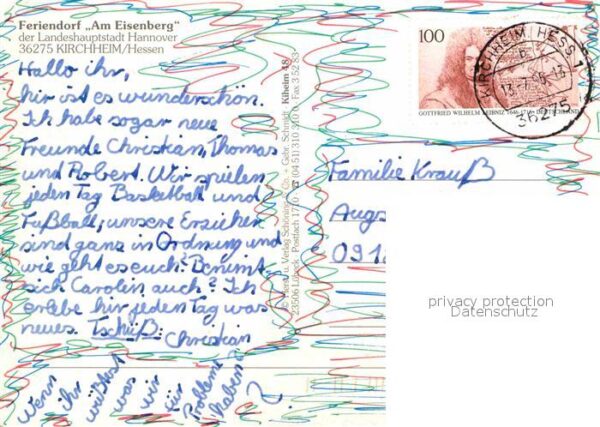 Feriendorf „Am Eisenberg“
der Landeshauptstadt Hannover
36275 KIRCHHEIM/Hessen
Hallo ihr,
hir ist es wunderschön.
Ich habe sogar neue
Freunde Christian, Thomas
und Robert. Wir spielen
jeden Tag Basketball und
Fußball, unsere Erzieher
sind ganz in Ordnung und
wie geht es euch? Benimt
sich Carolin auch? Ich
erlebe hir jeden Tag was
neues. Tschüß: Christian
Wenn
ihr
wüßtest
was
wir
für
Probleme
haben
?
Kiheim 48
23506 Lübeck · Postfach 1710
100
GOTTFRIED WILHELM LEIBNIZ 1646-1716 DEUTSCHLAND
KIRCHHEIM, HESS 1
36275
Familie Krauß
Augs
091
privacy protection
Datenschutz